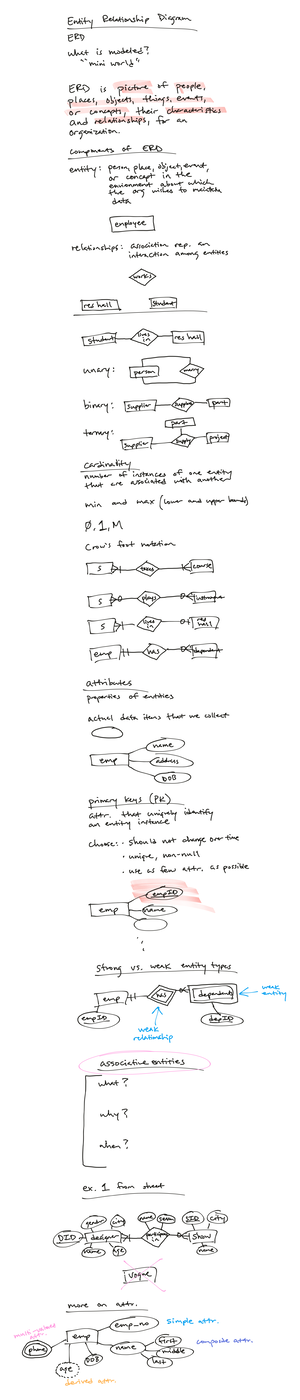 Entity Relationship Diagram
ERD
what is modeled?
"mini world"
ERD is picture of people,
places, objects, things, events,
or concepts, their characteristics
and relationships, for an
organization.
components of ERD
entity: person, place, object, event,
or concept in the
environment about which
the org wishes to maintain
data
employee
relationships: association rep. an
interaction among entities
works
res hall
student
student
lives in
res hall
unary:
person
marry
binary:
supplier
supply
part
ternary:
part
supplier
supply
project
cardinality
number of instances of one entity
that are associated with another
min and max (lower and upper bounds)
Ø, 1, M
Crow's foot notation
S
takes
course
S
plays
instrument
S
lives in
res hall
emp
has
dependent
attributes
properties of entities
actual data items that we collect
emp
name
address
DOB
primary keys (PK)
attr. that uniquely identify
an entity instance
choose: · should not change over time
· unique, non-null
· use as few attr. as possible
emp
empID
name
strong vs. weak entity types
emp
has
dependent
weak entity
empID
depID
weak relationship
associative entities
what?
why?
when?
ex. 1 from sheet
gender
city
name
SID
city
DID
designer
in
show
name
age
name
Vogue
more on attr.
emp_no
simple attr.
multi-valued attr.
phone
emp
name
first
middle
last
composite attr.
age
DOB
derived attr.